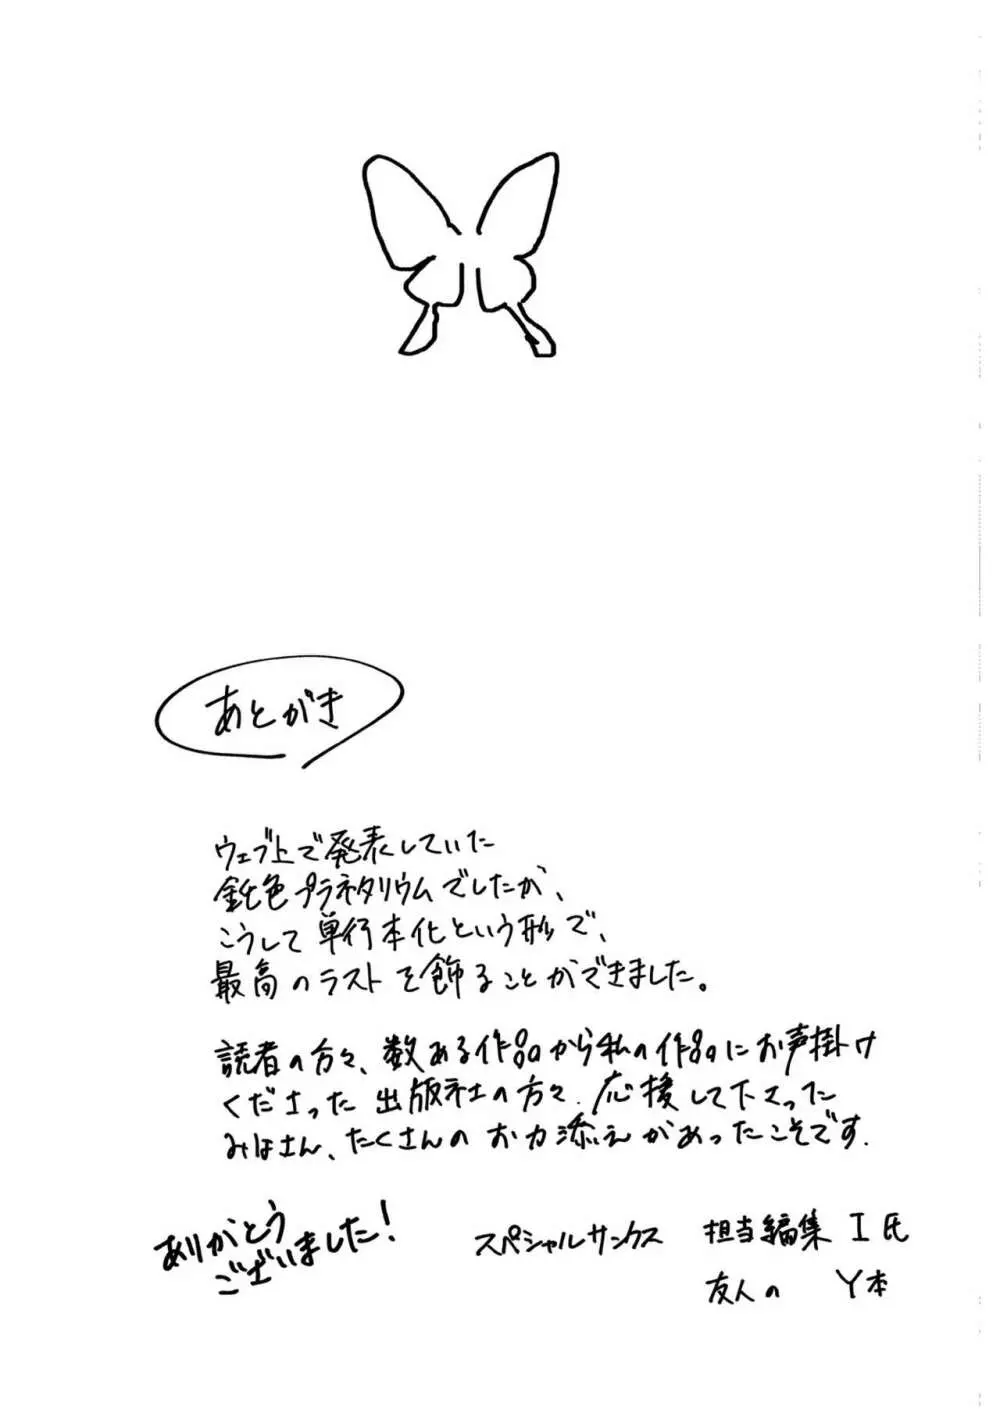 あとがき
ウェブ上で発表していた
鈍色プラネタリウムでしたが、
こうして単行本化という形で、
最高のラストを飾ることができました。
読者の方々、数ある作品から私の作品にお声掛け
くださった出版社の方々、応援して下さった
みなさん、たくさんのお力添えがあったこそです.
ありがとう
ございました!
スペシャルサンクス 担当編集 I氏
友人の Y本